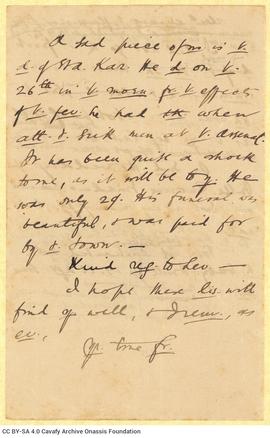 A sad piece of ns is t.
d. of Sta. Kar. He d. on t.
26th in t. morn. fr t. effects
of t. fev he had when
att. t. sick men at t. arsenal.
It has been quite a shock
to me, as it will be to y. He
was only 29. His funeral was
beautiful, & was paid for
by t. town. —
Kind reg. to her —
I hope these lis. will
find y. well, & as
ev.
Yr. true fr.
CC BY-SA 4.0 Cavafy Archive Onassis Foundation